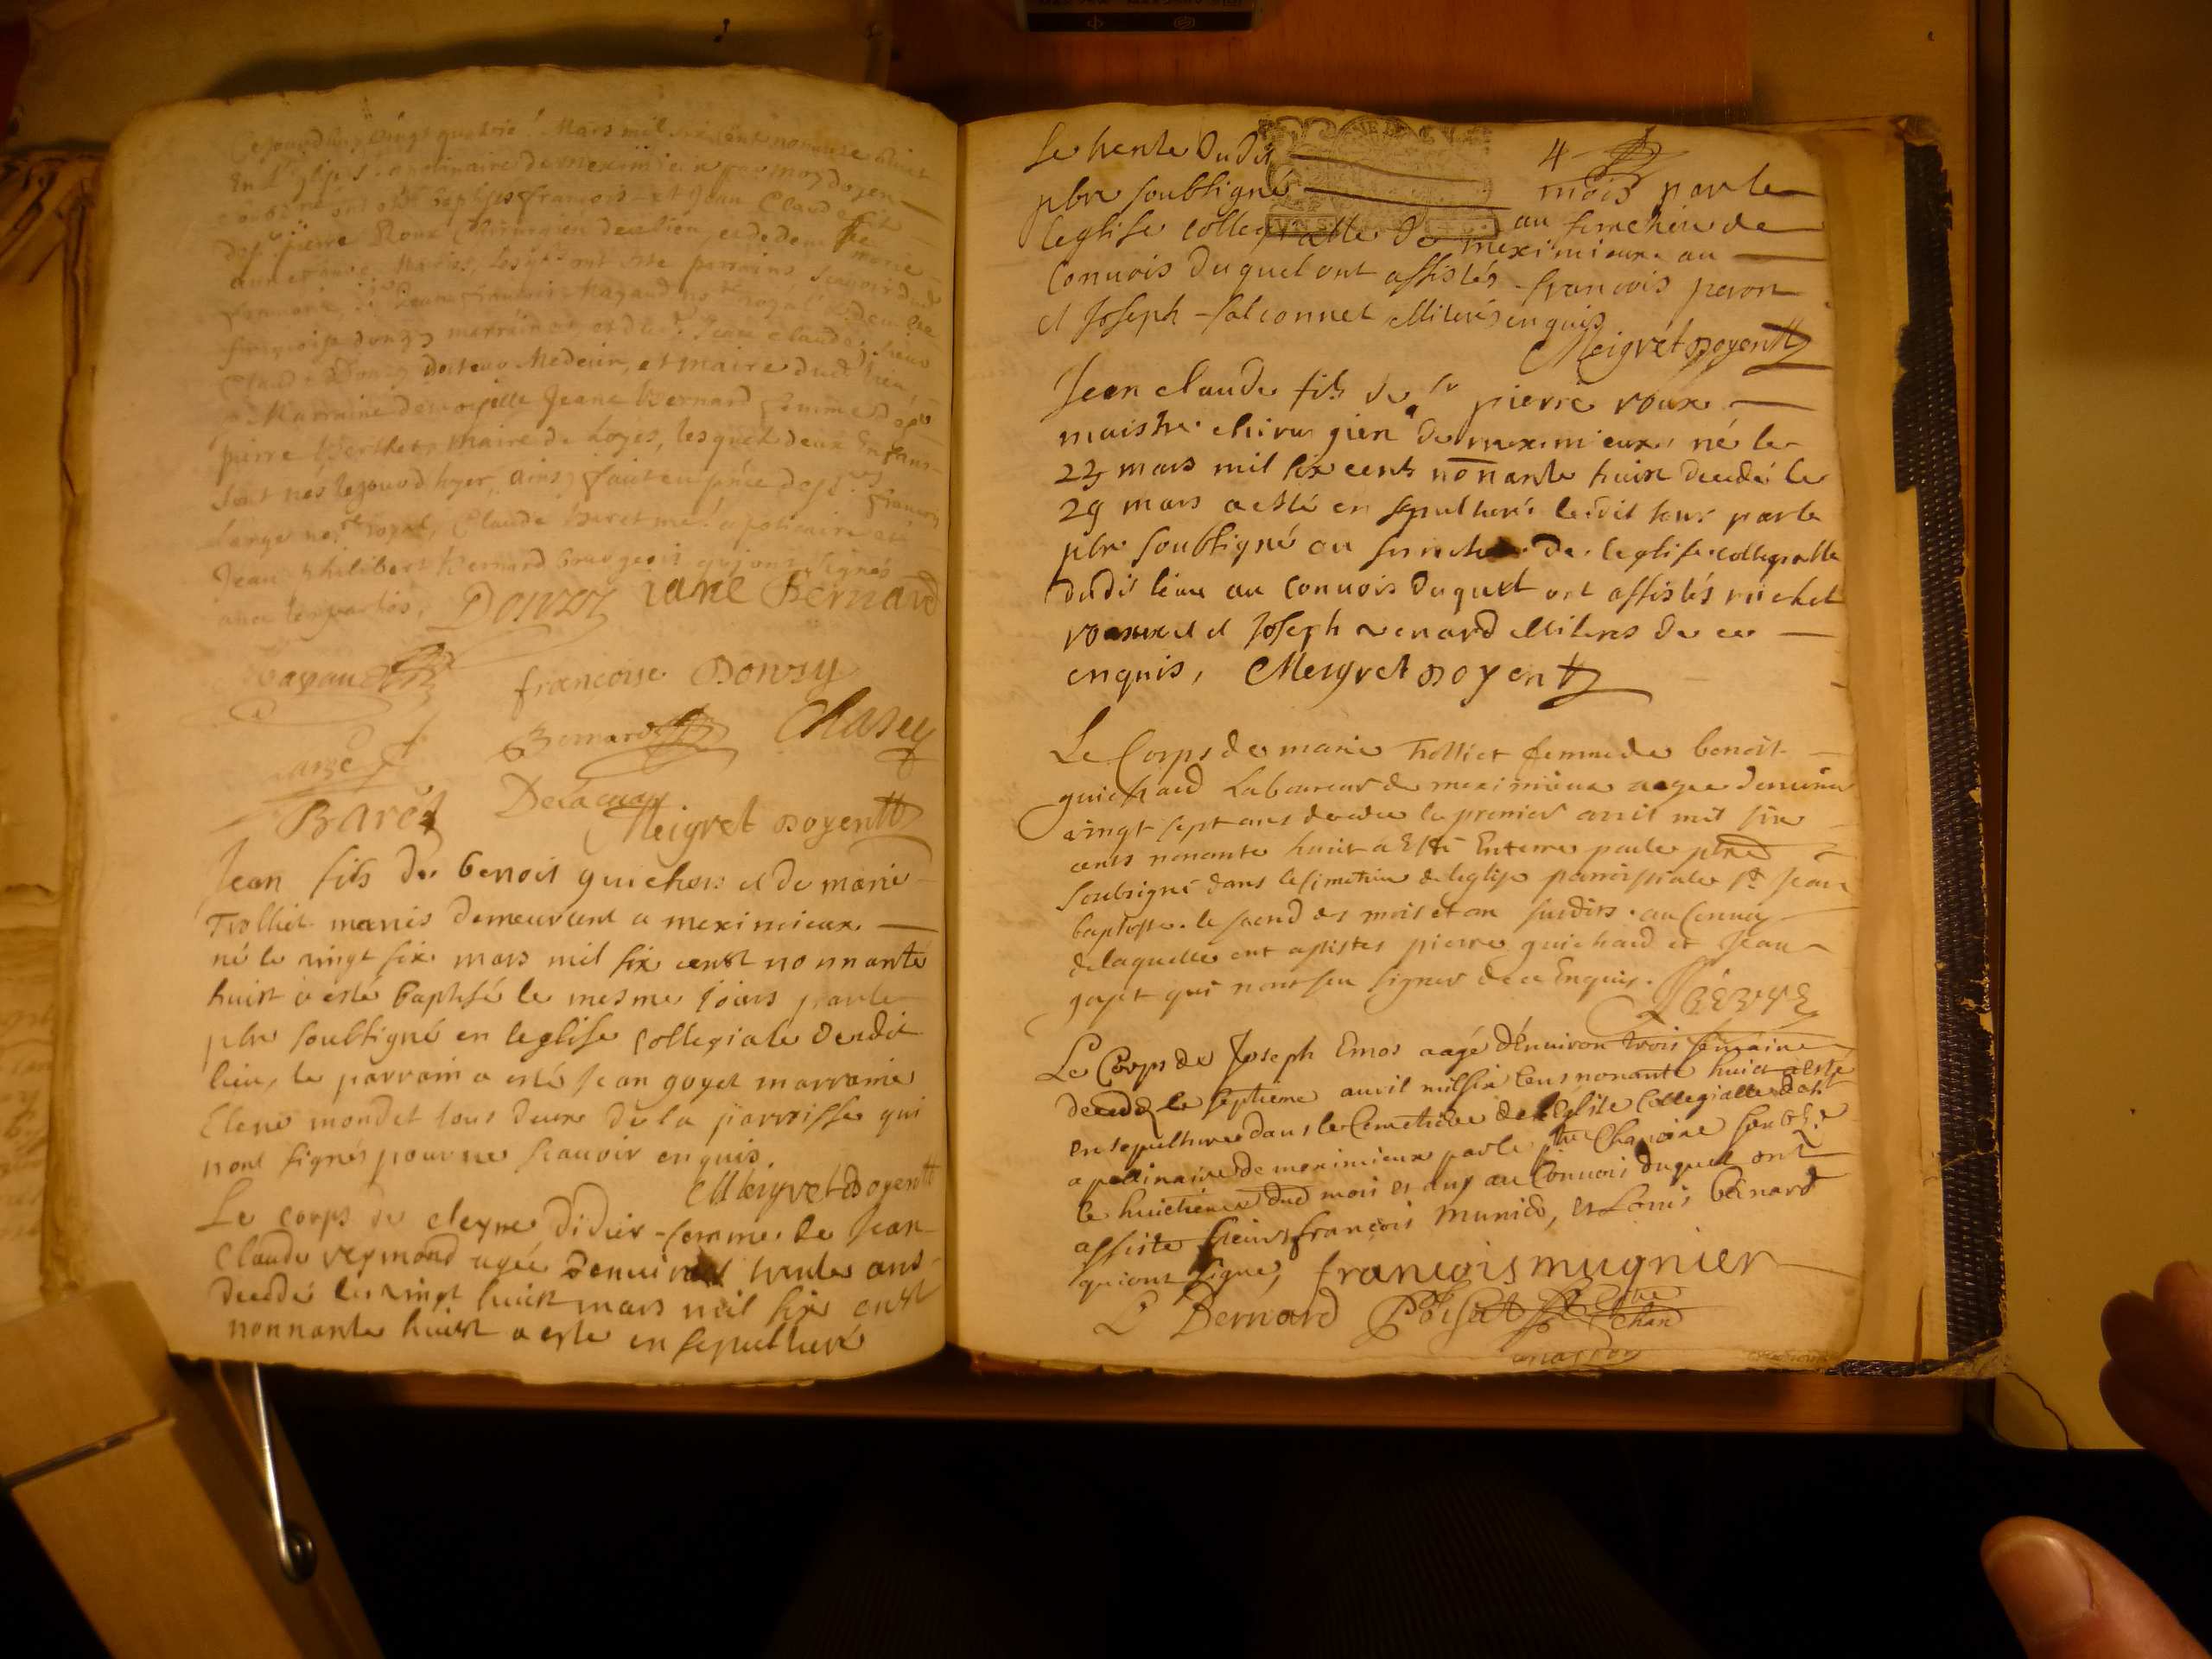 Cejourdhuy vingt quatrie! Mars mil six cent nonante huict
En L'Eglise S. apolinaire de meximieux par moy doyen
soubsigné ont esté baptises francois et Jean Claude fils
de sr pierre Roux Chirurgien dudit lieu, et de demlle marie
francoise donzy marraine, et dud. Jean claude, sieur
Claude Donzy docteur Medecin, et maire dud. lieu
Marraine demoiselle Jeane Bernard femme de
pierre Berthet, maire de Loyes, lesquels deux Enfans
sont nés le jourd'hyer, ainsy fait en pñce de francois
Large nore royal, Claude Baret me apoticaire et
Jean philibert Bernard bourgeois qui ont signés
avec les parties. Donzy Jane Bernard
françoise Donzy
Bernard Chasey
Large
Baret Delacroix
Meigret doyen
Jean fils de benoit guichard et de marie
Trolliet mariés demeurant a meximieux
né le vingt six mars mil six cent nonnante
huict a esté baptisé le mesme jour par le
pbre soubsigné en leglise collegiale dudit
lieu, le parrain a esté Jean goyet marraine
Elene mondet tous deux de la parroisse qui
nont signés pour ne scavoir enquis.
Meigret doyen
Le corps de cleyne didier femme de Jean
Claude reymond agée denviron trente ans
decedé le vingt huict mars mil six cent
nonnante huict a esté en sepulturé
4
le trente dudit mois par le
pbre soubsigné au simetiere de
leglise collegialle de meximieux au
convois duquel ont assistés francois peron
et Joseph falconnet illiterés enquis
Meigret doyen
Jean claude fils de sr pierre roux
maistre chirurgien de meximieux né le
23 mars mil six cents nonante huict decedé le
29 mars a esté en sepulturé ledit jour par le
pbre soubsigné au simetiere de leglise collegialle
dudit lieu au convois duquel ont assistés michel
et Joseph renard illiterés de ce
enquis, Meigret doyen
Le Corps de marie Trolliet femme de benoit
guichard Laboureur de meximieux aagee denviron
vingt sept ans decedee le premier avril mil six
cents nonante huict a Esté Enterree par le pbre
soubsigné dans le simetiere de leglise parroissiale St Jean
baptiste le second des mois et an susdits. au Convoy
de laquelle ont assistes pierre guichard et Jean
gojet qui nont seu signer de ce Enquis.
Le Corps de Joseph Emos aagé d'Environ trois semaines
decedé le septieme auvril mil six Cens nonante huict a esté
en sepulturé dans le Cemetiere de l'Eglise Collegialle de St
apollinaire de meximieux par le ptre Chanoine soubsé
le huictieme dud mois et an au Convoi duquel ont
assisté sieurs françois munier, et Louis bernard
qui ont signé, francois mugnier
L Bernard Poisat ptre
Chan